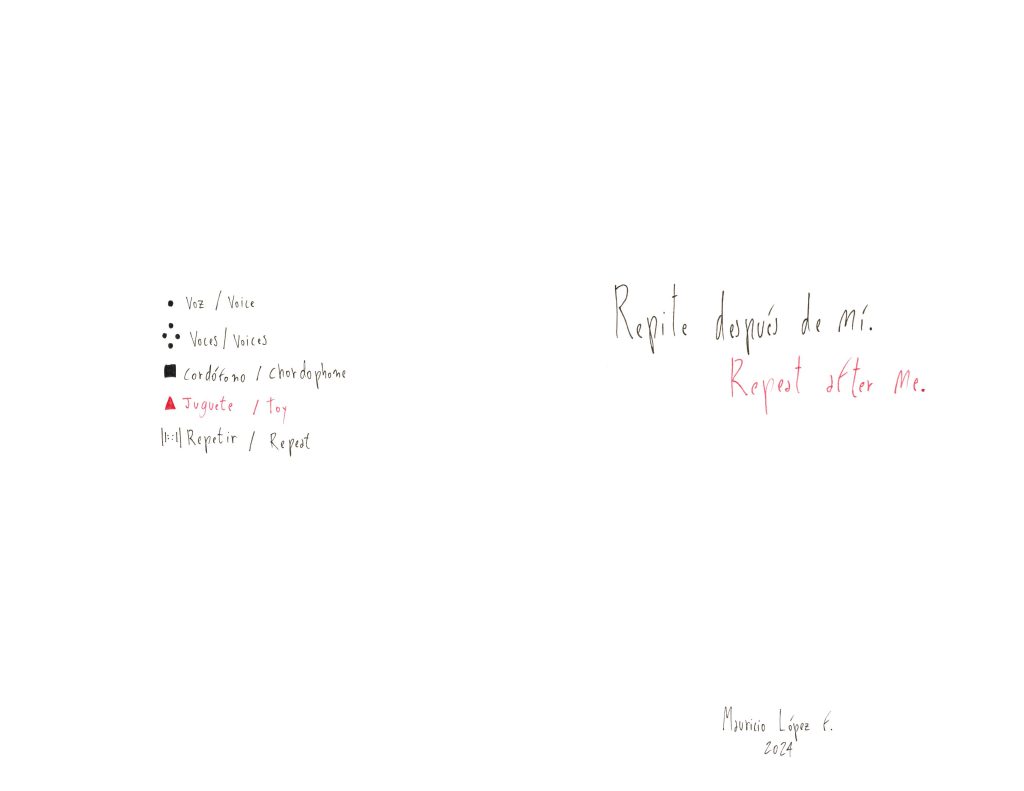 Voz / Voice
Voces / Voices
Cordófono / Chordophone
Juguete / Toy
Repetir / Repeat
Repite después de mí.
Repeat after me.
Mauricio López F.
2024